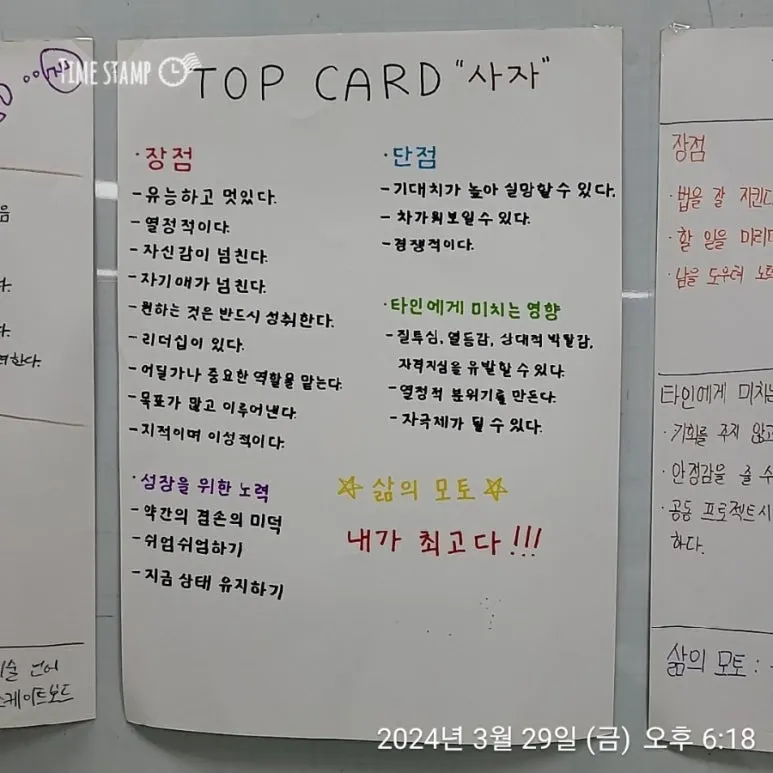 TIME STAMP
TOP CARD "사자"
·장점
-유능하고 멋있다.
-열정적이다.
-자신감이 넘친다.
-자기애가 넘친다.
-원하는 것은 반드시 성취한다.
-리더십이 있다.
-어딜가나 중요한 역할을 맡는다.
-목표가 많고 이루어낸다.
-지적이며 이성적이다.
·성장을 위한 노력
-약간의 겸손의 미덕
-쉬엄쉬엄하기
-지금 상태 유지하기
·단점
-기대치가 높아 실망할 수 있다.
-차가워보일 수 있다.
-경쟁적이다.
·타인에게 미치는 영향
-질투심, 열등감, 상대적 박탈감,
자격지심을 유발할 수 있다.
-열정적 분위기를 만든다.
-자극제가 될 수 있다.
☆ 삶의 모토 ☆
내가 최고다!!!
장점
·법을 잘 지킨다
·할 일을 미리
·남을 도우려
타인에게 미치는
·기회를 주지 않고
·안정감을 줄 수
·공동 프로젝트시
하다.
삶의 모토 :
2024년 3월 29일 (금) 오후 6:18